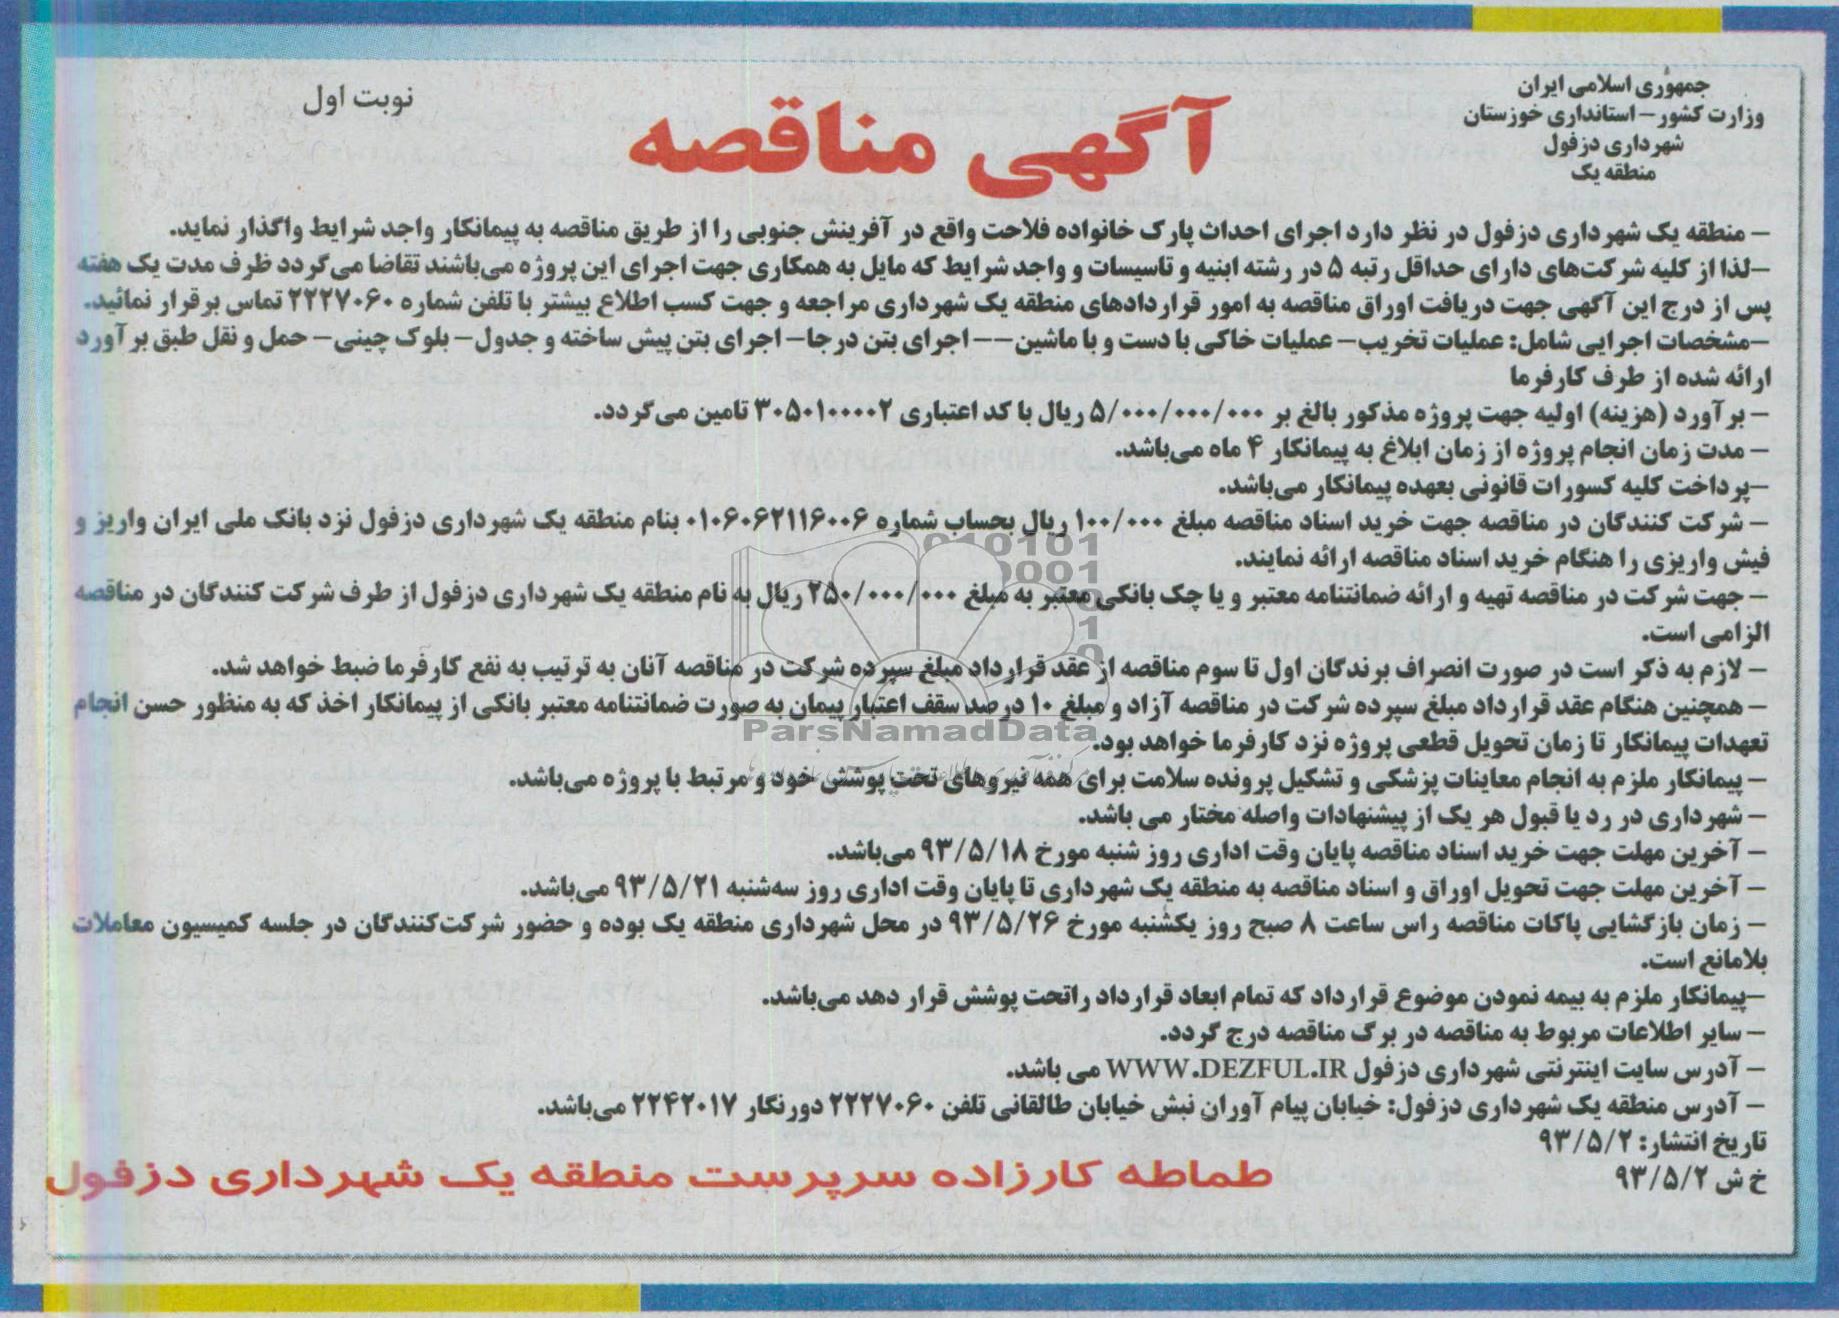 جمهوری اسلامی ایران
وزارت کشور - استانداری خوزستان
شهرداری دزفول
منطقه یک
نوبت اول
آگهی مناقصه
- منطقه یک شهرداری دزفول در نظر دارد اجرای احداث پارک خانواده فلاحت واقع در آفرینش جنوبی را از طریق مناقصه به پیمانکار واجد شرایط واگذار نماید.
-لذا از کلیه شرکت‌های دارای حداقل رتبه ۵ در رشته ابنیه و تاسیسات و واجد شرایط که مایل به همکاری جهت اجرای این پروژه می‌باشند تقاضا می‌گردد ظرف مدت یک هفته
پس از درج این آگهی جهت دریافت اوراق مناقصه به امور قراردادهای منطقه یک شهرداری مراجعه و جهت کسب اطلاع بیشتر با تلفن شماره ۲۲۲۷۰۶۰ تماس برقرار نمائید.
-مشخصات اجرایی شامل: عملیات تخریب- عملیات خاکی با دست و با ماشین-- اجرای بتن درجا- اجرای بتن پیش ساخته و جدول- بلوک چینی- حمل و نقل طبق برآورد
ارائه شده از طرف کارفرما
- برآورد (هزینه) اولیه جهت پروژه مذکور بالغ بر ۵/۰۰۰/۰۰۰/۰۰۰ ریال با کد اعتباری ۳۰۵۰۱۰۰۰۰۲ تامین می‌گردد.
- مدت زمان انجام پروژه از زمان ابلاغ به پیمانکار ۴ ماه می‌باشد.
-پرداخت کلیه کسورات قانونی بعهده پیمانکار می‌باشد.
- شرکت کنندگان در مناقصه جهت خرید اسناد مناقصه مبلغ ۱۰۰/۰۰۰ ریال بحساب شماره ۰۱۰۶۰۶۲۱۱۶۰۰۶ بنام منطقه یک شهرداری دزفول نزد بانک ملی ایران واریز و
فیش واریزی را هنگام خرید اسناد مناقصه ارائه نمایند.
- جهت شرکت در مناقصه تهیه و ارائه ضمانتنامه معتبر و یا چک بانکی معتبر به مبلغ ۲۵۰/۰۰۰/۰۰۰ ریال به نام منطقه یک شهرداری دزفول از طرف شرکت کنندگان در مناقصه
الزامی است.
- لازم به ذکر است در صورت انصراف برندگان اول تا سوم مناقصه از عقد قرارداد مبلغ سپرده شرکت در مناقصه آنان به ترتیب به نفع کارفرما ضبط خواهد شد.
- همچنین هنگام عقد قرارداد مبلغ سپرده شرکت در مناقصه آزاد و مبلغ ۱۰ درصد سقف اعتبار پیمان به صورت ضمانتنامه معتبر بانکی از پیمانکار اخذ که به منظور حسن انجام
تعهدات پیمانکار تا زمان تحویل قطعی پروژه نزد کارفرما خواهد بود.
- پیمانکار ملزم به انجام معاینات پزشکی و تشکیل پرونده سلامت برای همه نیروهای تحت پوشش خود و مرتبط با پروژه می‌باشد.
- شهرداری در رد یا قبول هر یک از پیشنهادات واصله مختار می باشد.
- آخرین مهلت جهت خرید اسناد مناقصه پایان وقت اداری روز شنبه مورخ ۹۳/۵/۱۸ می‌باشد.
- آخرین مهلت جهت تحویل اوراق و اسناد مناقصه به منطقه یک شهرداری تا پایان وقت اداری روز سه‌شنبه ۹۳/۵/۲۱ می‌باشد.
- زمان بازگشایی پاکات مناقصه راس ساعت ۸ صبح روز یکشنبه مورخ ۹۳/۵/۲۶ در محل شهرداری منطقه یک بوده و حضور شرکت‌کنندگان در جلسه کمیسیون معاملات
بلامانع است.
-پیمانکار ملزم به بیمه نمودن موضوع قرارداد که تمام ابعاد قرارداد راتحت پوشش قرار دهد می‌باشد.
- سایر اطلاعات مربوط به مناقصه در برگ مناقصه درج گردد.
- آدرس سایت اینترنتی شهرداری دزفول WWW.DEZFUL.IR می باشد.
- آدرس منطقه یک شهرداری دزفول: خیابان پیام آوران نبش خیابان طالقانی تلفن ۲۲۲۷۰۶۰ دورنگار ۲۲۴۲۰۱۷ می‌باشد.
تاریخ انتشار: ۹۳/۵/۲
خ ش ۹۳/۵/۲
طماطه کارزاده سرپرست منطقه یک شهرداری دزفول
ParsNamadData